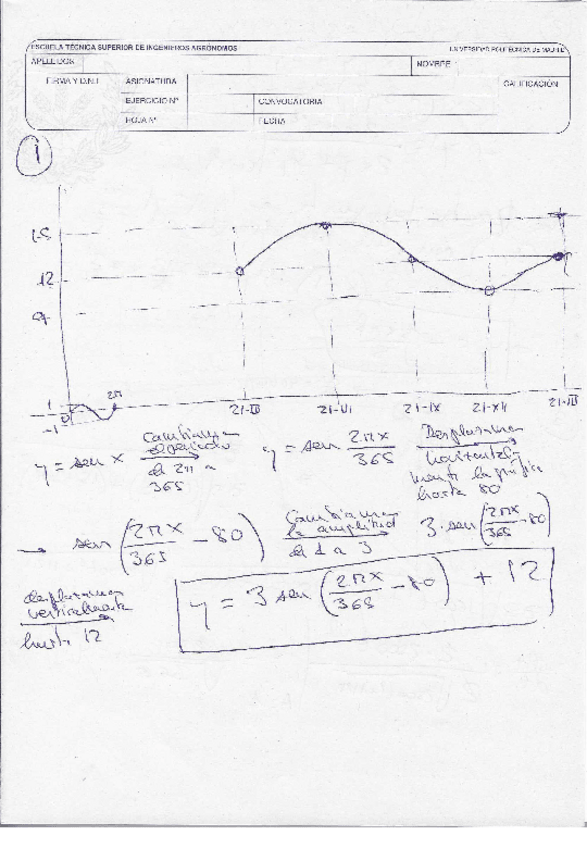 ESCUELA TÉCNICA SUPERIOR DE INGENIEROS AGRÓNOMOS
UNIVERSIDAD POLITÉCNICA DE MADRID
APELLIDOS
NOMBRE
FIRMA Y D.N.I.
ASIGNATURA
CALIFICACIÓN
EJERCICIO Nº
CONVOCATORIA
HOJA Nº
FECHA
1
15
12
9
1
0
-1
2π
21-III
21-VI
21-IX
21-XII
21-III
y = sen x
Cambiamos
el periodo
de 2π a
365
y = sen 2πx/365
Desplazamos
horizontal-
mente la gráfica
hasta 80
→ sen (2πx/365 - 80)
Cambiamos
la amplitud
de 1 a 3
3·sen (2πx/365 - 80)
desplazamos
verticalmente
hasta 12
y = 3 sen (2πx/365 - 80) + 12